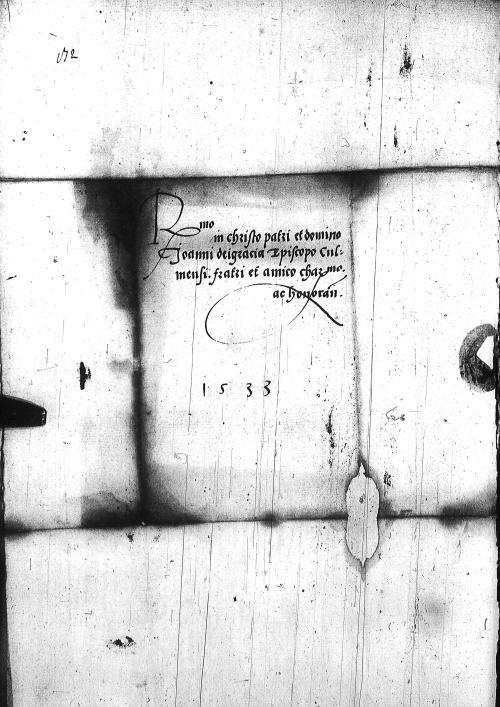 Rmo
in christo patri et domino
Joanni dei gracia Episcopo Cul-
mensi. fratri et amico charmo.
ac honoran.
1533